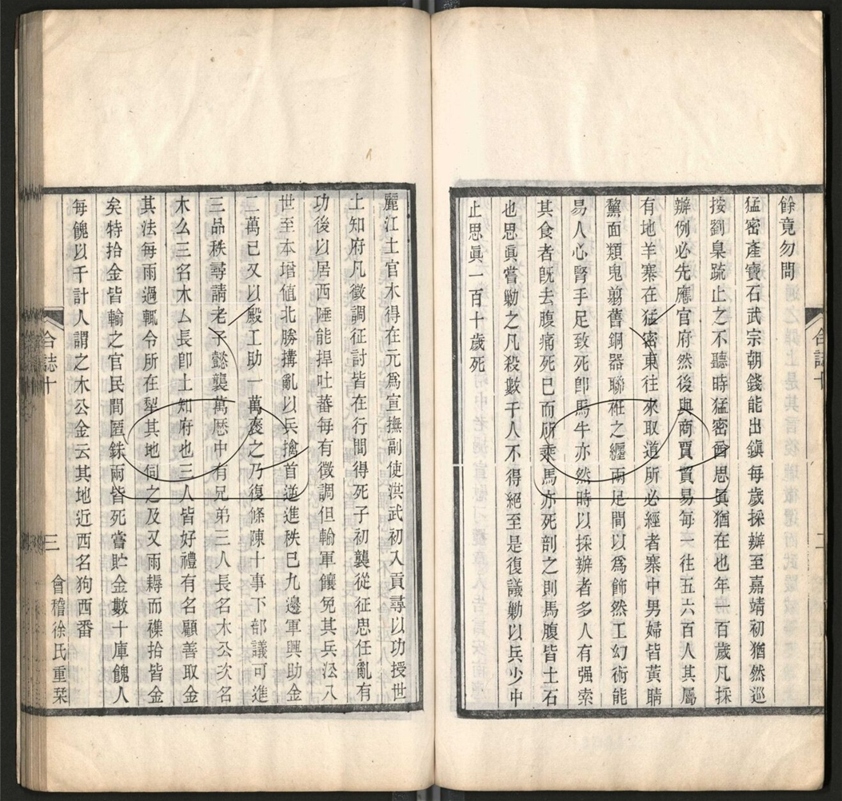 餘竟勿問
猛密產寶石武宗朝錢能出鎮每歲採辦至嘉靖初猶然巡
按劉臬䟽止之不聽時猛密酋思眞猶在也年一百歲凡採
辦例必先應官府然後與商賈貿易每一往五六百人其屬
有地羊寨在猛密東往來取道所必經者寨中男婦皆黃睛
黧面類鬼翦舊銅器聯之纏兩足間以爲飾然工幻術能
易人心腎手足致死卽馬牛亦然時以採辦者多人有强索
其食者旣去腹痛死已而所乘馬亦死剖之則馬腹皆土石
也思眞嘗勦之凡殺數千人不得絕至是復議勦以兵少中
止思眞一百十歲死
合誌十
二
麗江土官木得在元爲宣撫副使洪武初入貢尋以功授世
土知府凡徵調征討皆在行間得死子初襲從征思任亂有
功後以居西陲能捍吐蕃每有徵調但輸軍饟免其兵泒八
世至本增值北勝搆亂以兵擒首逆進秩已九邊軍興助金
二萬已又以殿工助一萬褒之乃復條陳十事下部議可進
三品秩尋請老予懿襲萬厯中有兄弟三人長名木公次名
木么三名木厶長卽土知府也三人皆好禮有名顧善取金
其法每雨過輒令所在犁其地伺之及又雨耨而襍拾皆金
矣特拾金皆輸之官民間匿銖兩皆死嘗貯金數十庫餽人
每餽以千計人謂之木公金云其地近西名狗西番
合誌十
三
會稽徐氏重棨